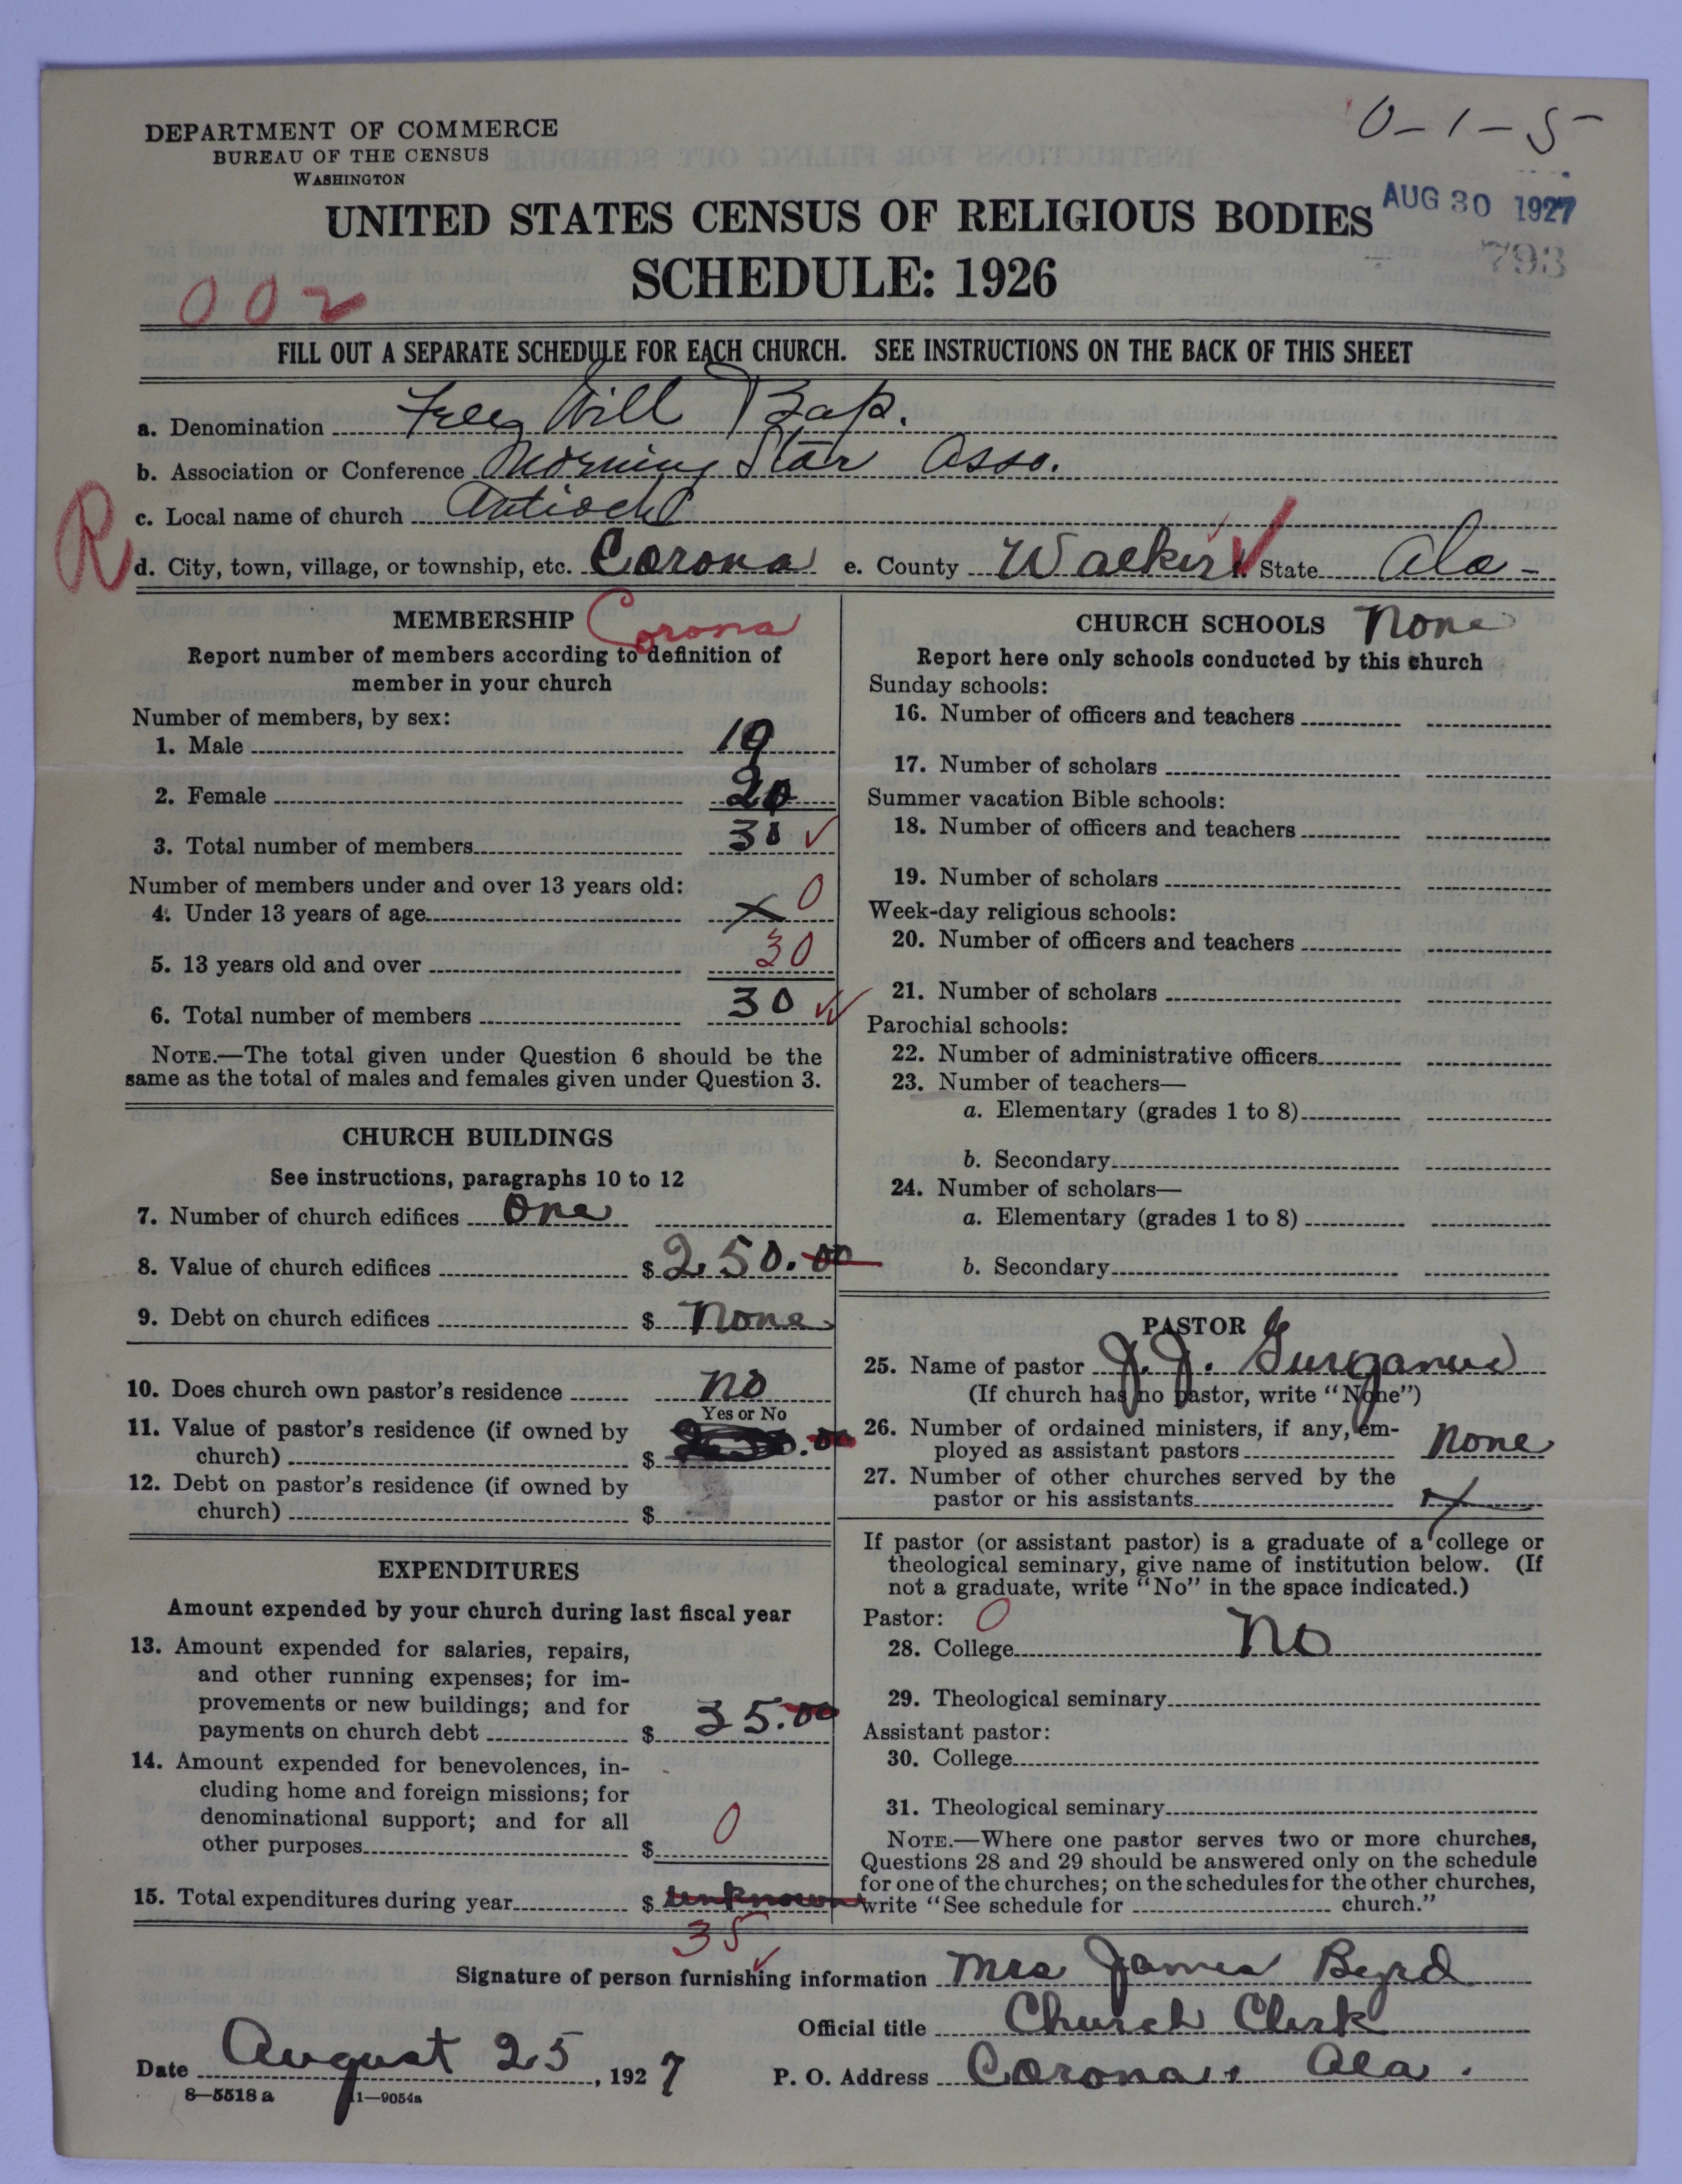 0-1-5-
DEPARTMENT OF COMMERCE
BUREAU OF THE CENSUS
WASHINGTON
UNITED STATES CENSUS OF RELIGIOUS BODIES
AUG 30 1927
793
SCHEDULE: 1926
002
FILL OUT A SEPARATE SCHEDULE FOR EACH CHURCH. SEE INSTRUCTIONS ON THE BACK OF THIS SHEET
a. Denomination Free Will Bap.
b. Association or Conference Morning Star Asso.
c. Local name of church Antioch
R
d. City, town, village, or township, etc. Corona e. County Walker f. State Ala-
MEMBERSHIP Corona
Report number of members according to definition of
member in your church
Number of members, by sex:
1. Male 10
2. Female 20
3. Total number of members 30 ✓
Number of members under and over 13 years old:
4. Under 13 years of age X 0
5. 13 years old and over 30
6. Total number of members 30 ✓✓
NOTE.—The total given under Question 6 should be the
same as the total of males and females given under Question 3.
CHURCH BUILDINGS
See instructions, paragraphs 10 to 12
7. Number of church edifices One
8. Value of church edifices $ 250.00
9. Debt on church edifices $ None
10. Does church own pastor's residence No
Yes or No
11. Value of pastor's residence (if owned by
church) $
12. Debt on pastor's residence (if owned by
church) $
EXPENDITURES
Amount expended by your church during last fiscal year
13. Amount expended for salaries, repairs,
and other running expenses; for im-
provements or new buildings; and for
payments on church debt $ 35.00
14. Amount expended for benevolences, in-
cluding home and foreign missions; for
denominational support; and for all
other purposes $ 0
15. Total expenditures during year $ unknown
35 ✓
CHURCH SCHOOLS None
Report here only schools conducted by this church
Sunday schools:
16. Number of officers and teachers
17. Number of scholars
Summer vacation Bible schools:
18. Number of officers and teachers
19. Number of scholars
Week-day religious schools:
20. Number of officers and teachers
21. Number of scholars
Parochial schools:
22. Number of administrative officers
23. Number of teachers—
a. Elementary (grades 1 to 8)
b. Secondary
24. Number of scholars—
a. Elementary (grades 1 to 8)
b. Secondary
PASTOR
25. Name of pastor J. J. Gurganus
(If church has no pastor, write "None")
26. Number of ordained ministers, if any, em-
ployed as assistant pastors None
27. Number of other churches served by the
pastor or his assistants X
If pastor (or assistant pastor) is a graduate of a college or
theological seminary, give name of institution below. (If
not a graduate, write "No" in the space indicated.)
Pastor: 0
28. College No
29. Theological seminary
Assistant pastor:
30. College
31. Theological seminary
NOTE.—Where one pastor serves two or more churches,
Questions 28 and 29 should be answered only on the schedule
for one of the churches; on the schedules for the other churches,
write "See schedule for church."
Signature of person furnishing information Mrs James Byrd
Official title Church Clerk
Date August 25, 1927 P. O. Address Corona, Ala.
8—5518 a 11—9054a